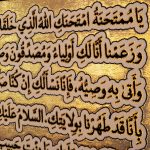 يَا مُمْتَحَنَةُ امْتَحَنَكِ اللهُ الَّذِي خَلَقَكِ
وَزَعَمْنَا أَنَّا لَكِ أَوْلِيَاءُ وَمُصَدِّقُونَ وَ
وَأَتَى بِهِ وَصِيُّهُ، فَإِنَّا نَسْأَلُكِ إِنْ كُنَّا
بِأَنَّا قَدْ طَهُرْنَا بِوِلَايَتِكِ السَّلَامُ عَلَيْكِ